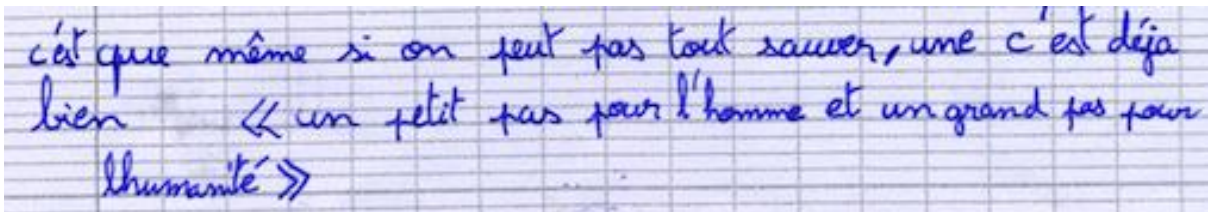 c'est que même si on peut pas tout sauver, une c'est déja
bien « un petit pas pour l'homme et un grand pas pour
lhumanité »